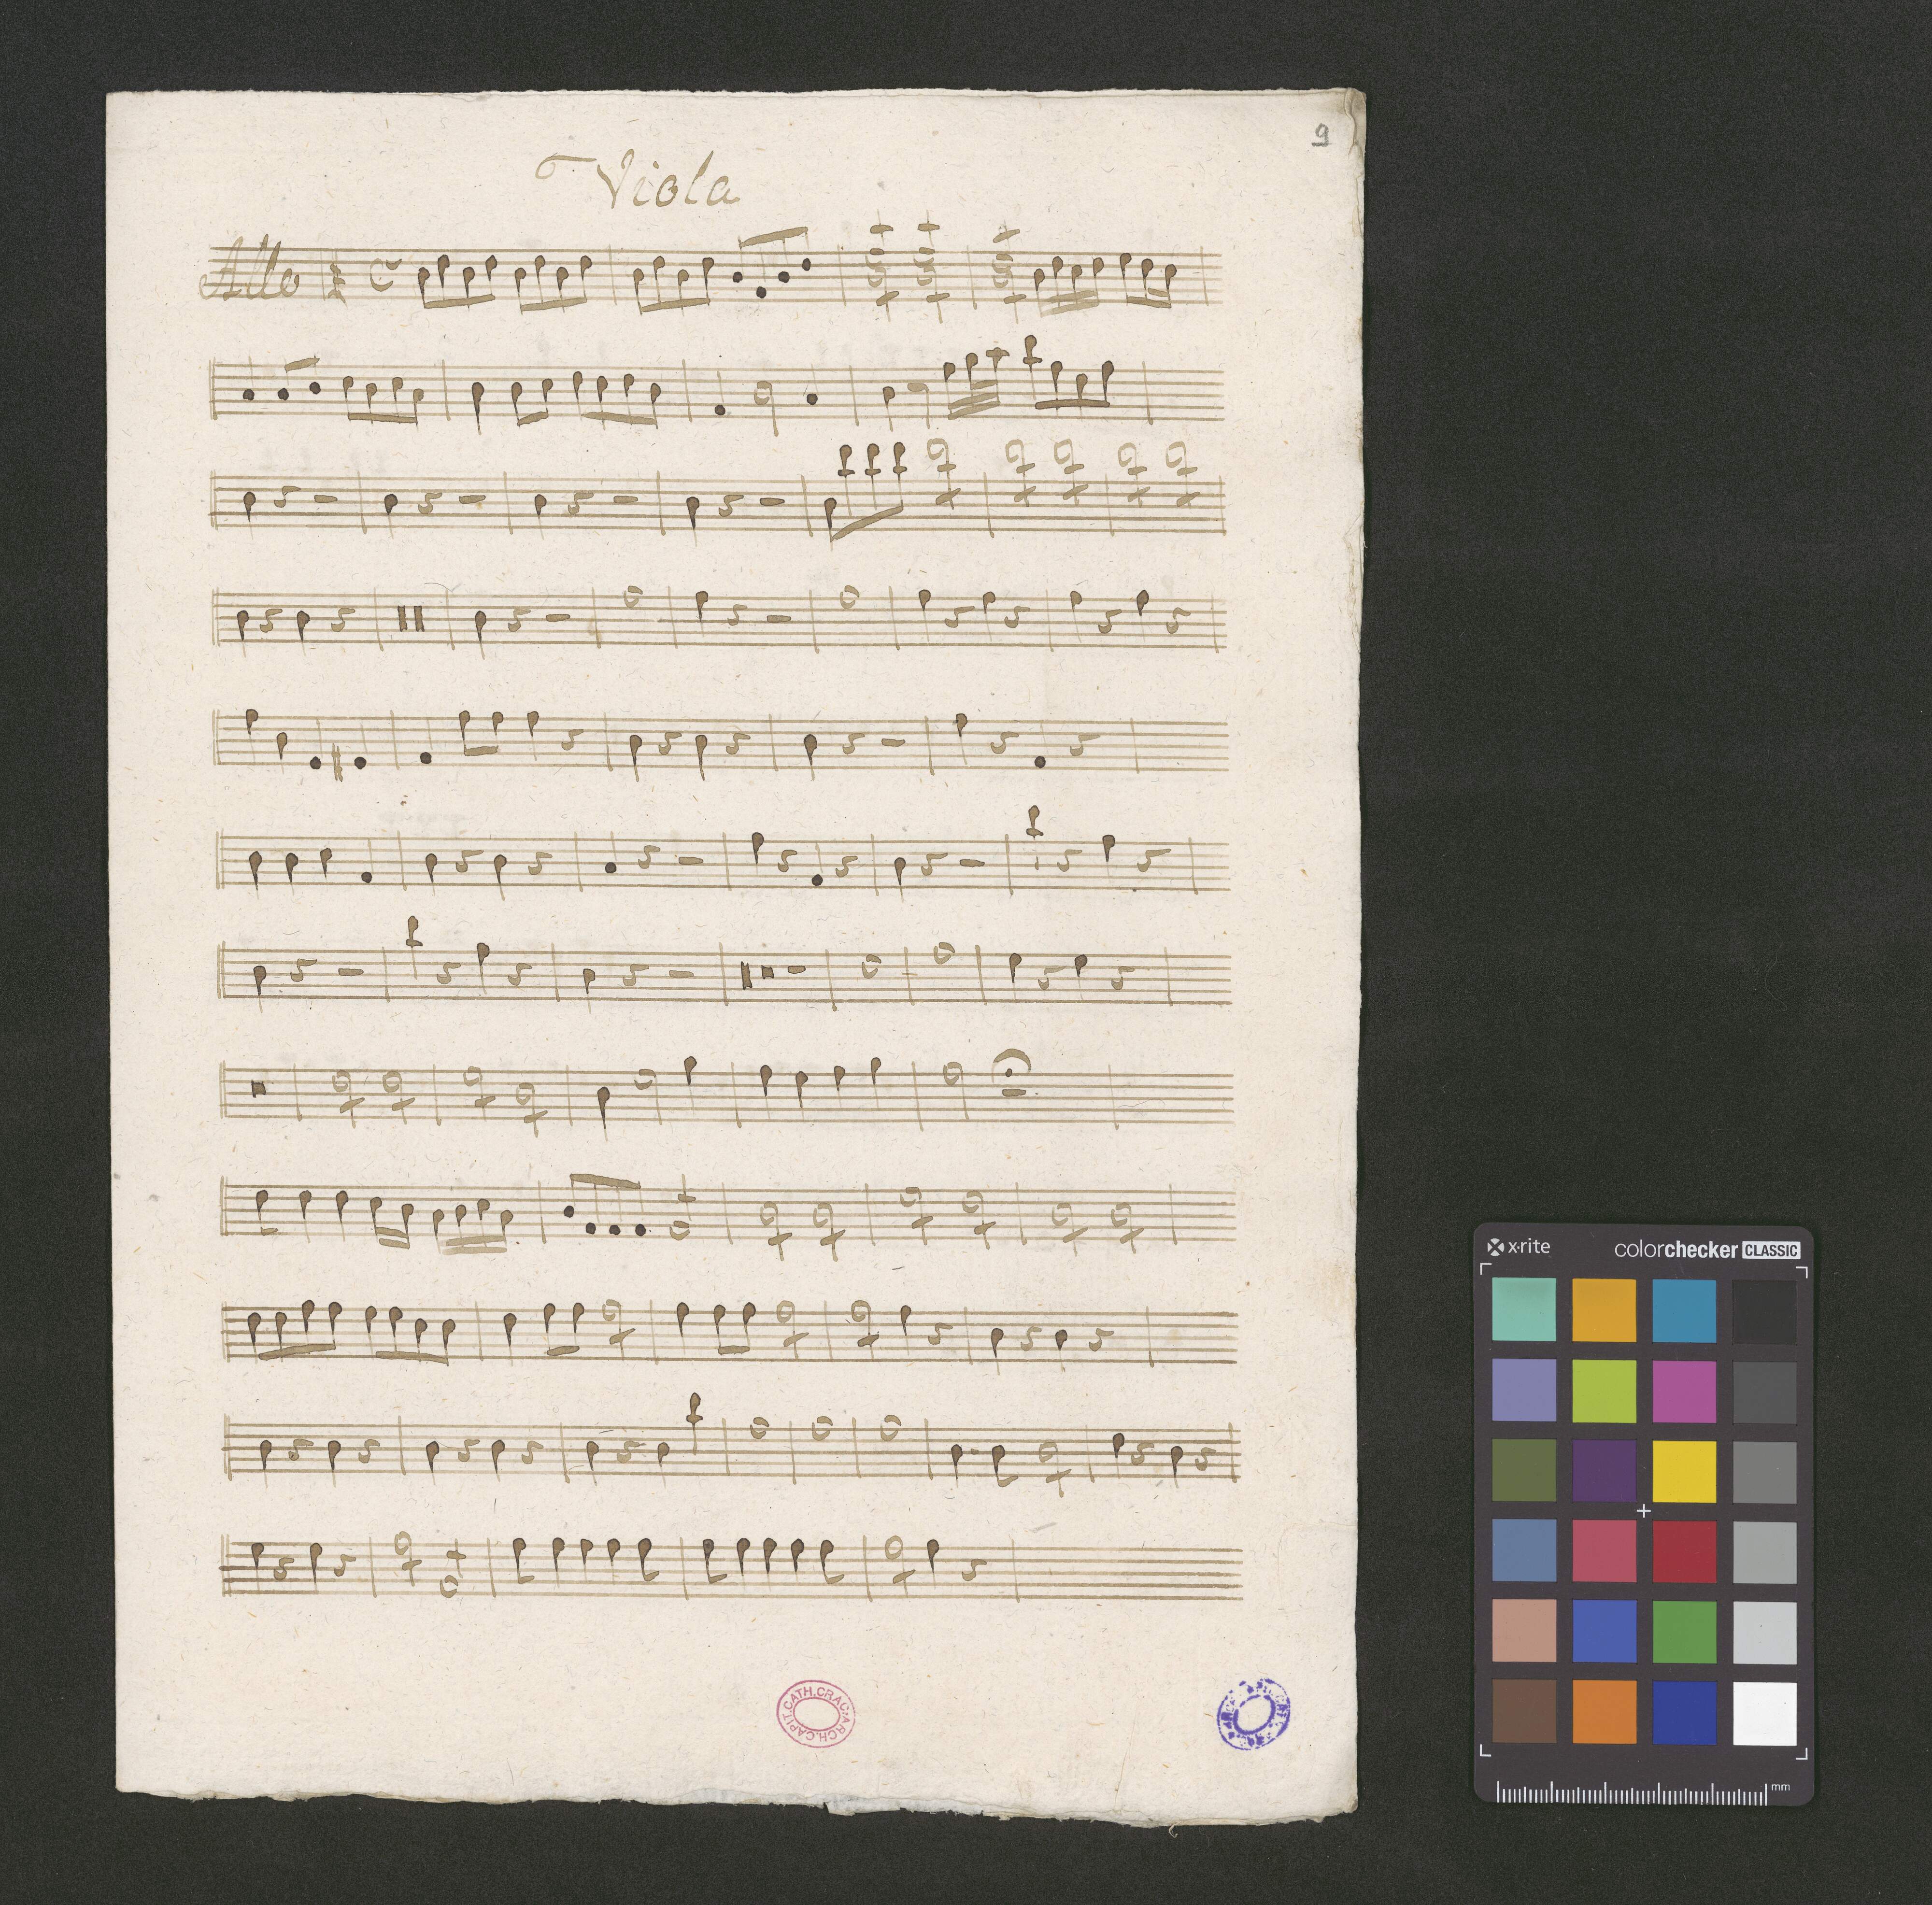 9
Viola
Allo
ARCH.CAPIT.CATH.CRAC.
x-rite
colorchecker CLASSIC
mm